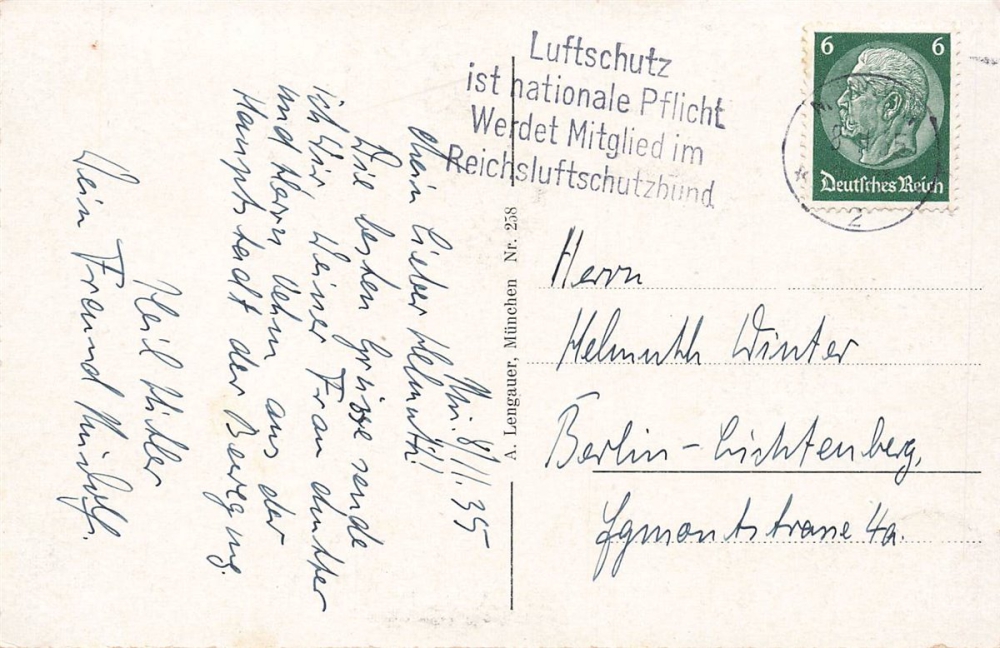 Mü. 8./11.35
Mein lieber Helmuth!
Die besten Grüsse sende
ich Dir, Deiner Frau Mutter
und Herrn aus der
Hauptstadt der Bewegung.
Heil Hitler
Dein Freund
A. Lengauer, München Nr. 258
Luftschutz
ist nationale Pflicht
Werdet Mitglied im
Reichsluftschutzbund
6 6
Deutsches Reich
2
Herrn
Helmuth Winter
Berlin-Lichtenberg,
Egmontstrasse 4a.